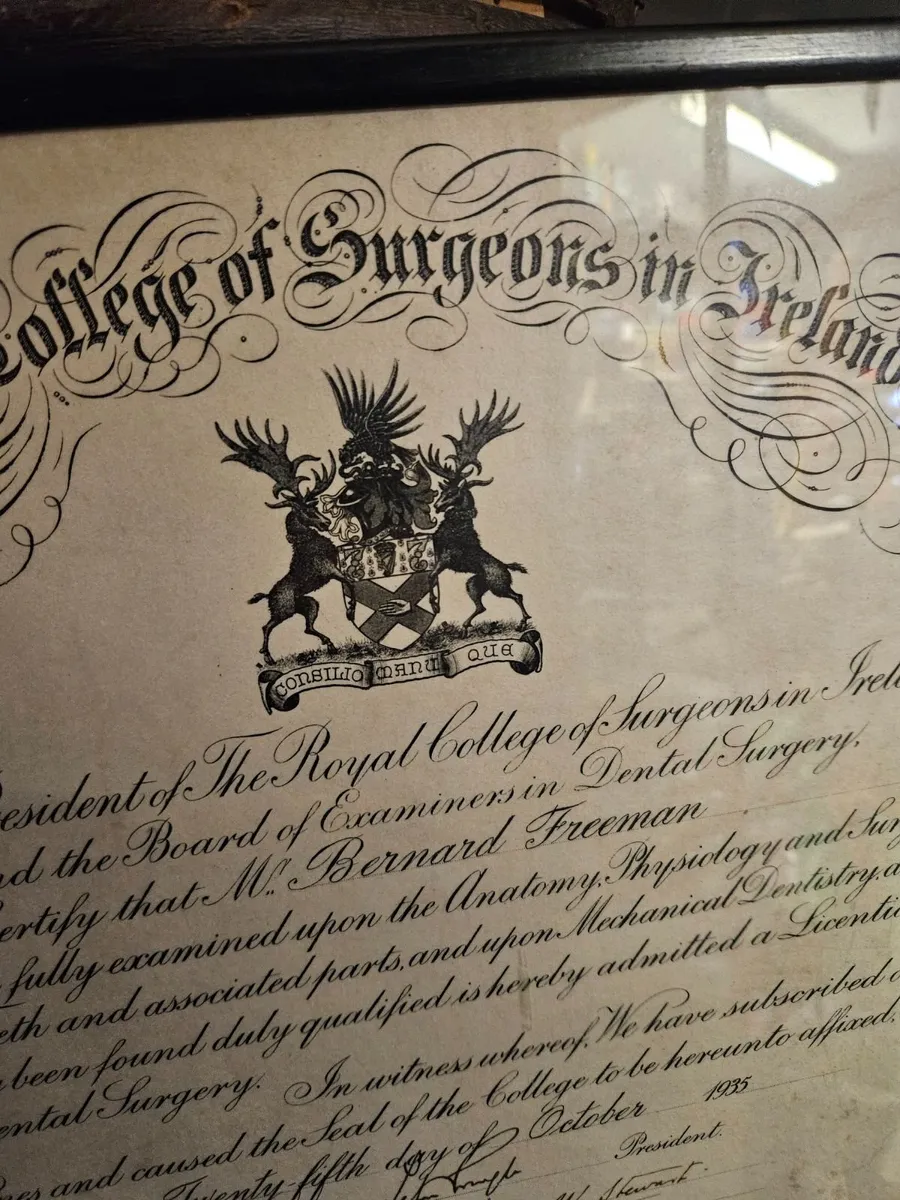 College of Surgeons in Ireland
CONSILIO MANU QUE
President of The Royal College of Surgeons in
and the Board of Examiners in Dental Surgery,
certify that Mr. Bernard Freeman
fully examined upon the Anatomy, Physiology and
eth and associated parts, and upon Mechanical Dentistry, a
been found duly qualified is hereby admitted a
ental Surgery. In witness whereof, We have subscribed
es and caused the Seal of the College to be hereunto affixed,
Twenty-fifth day of October 1935
President.
Stewart